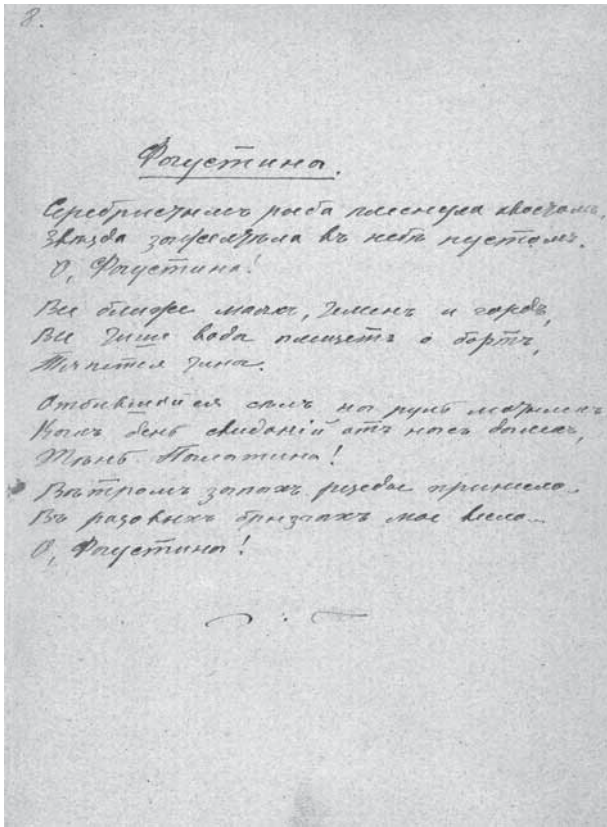 8.
Фаустина.
Серебристымъ рыба плеснула хвостомъ,
Звѣзда зажелтѣла въ небѣ пустомъ.
О, Фаустина!
Все ближе маякъ, теменъ и гордъ,
Все тише вода плещетъ о бортъ,
Тянется тина.
Отбившийся сѣлъ на руль мотылекъ
Какъ день свиданій отъ насъ далекъ,
Тѣнь Палатина!
Вѣтромъ запахъ резеды принесло..
Въ розовыхъ брызгахъ мое весло...
О, Фаустина!